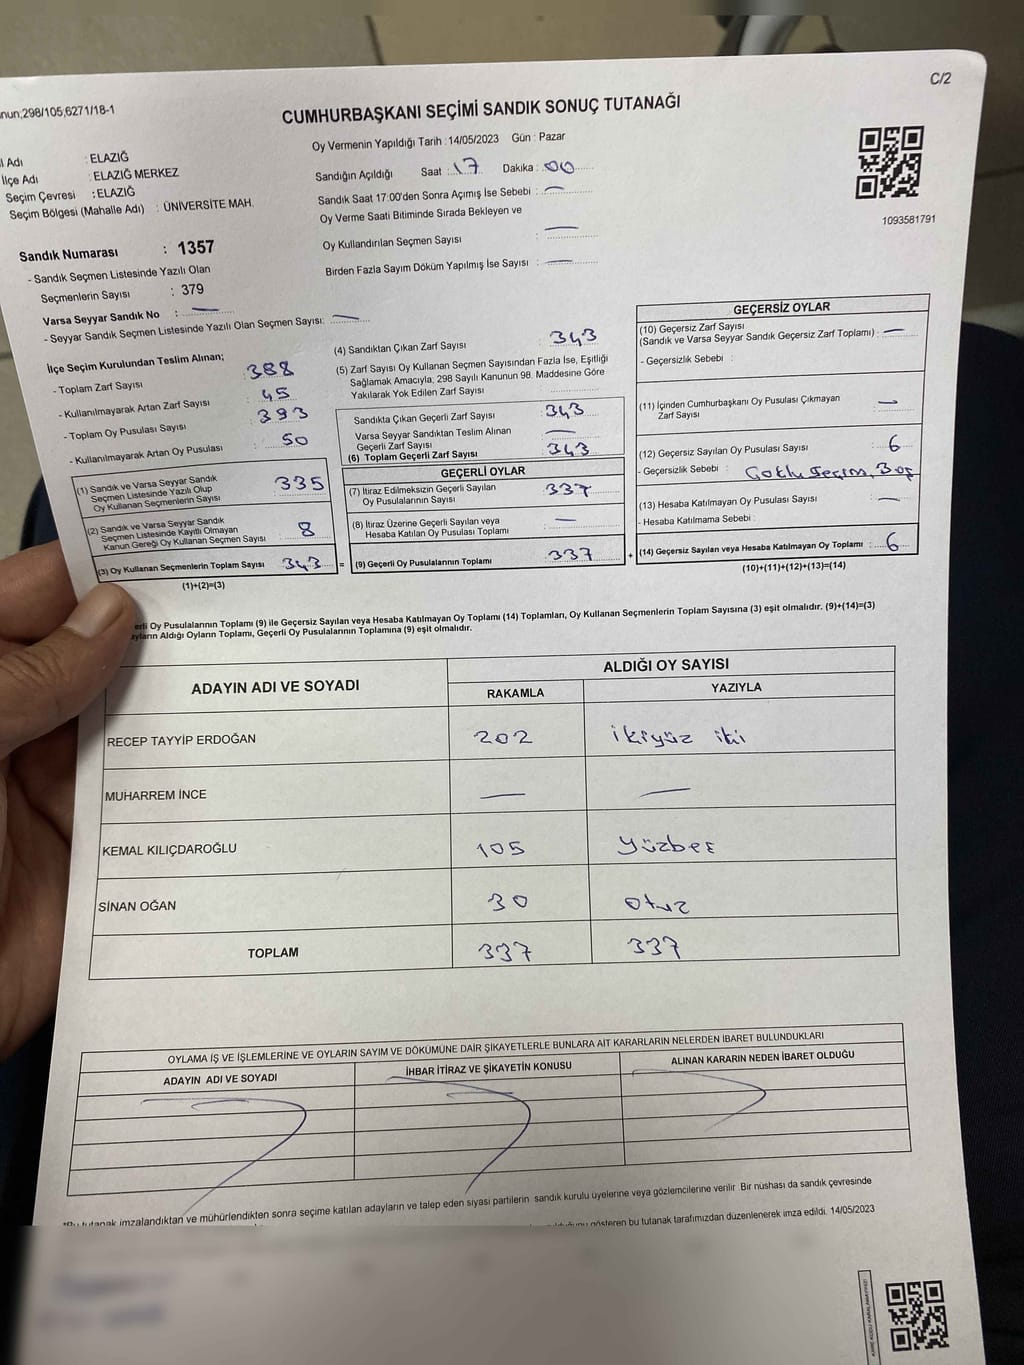 nun;298/105;6271/18-1
C/2
CUMHURBAŞKANI SEÇİMİ SANDIK SONUÇ TUTANAĞI
l Adı : ELAZIĞ
İlçe Adı : ELAZIĞ MERKEZ
Seçim Çevresi : ELAZIĞ
Seçim Bölgesi (Mahalle Adı) : ÜNİVERSİTE MAH.
Sandık Numarası : 1357
- Sandık Seçmen Listesinde Yazılı Olan
Seçmenlerin Sayısı : 379
Varsa Seyyar Sandık No : —
- Seyyar Sandık Seçmen Listesinde Yazılı Olan Seçmen Sayısı: —
Oy Vermenin Yapıldığı Tarih : 14/05/2023 Gün : Pazar
Sandığın Açıldığı Saat : 17 Dakika : 00
Sandık Saat 17:00'den Sonra Açımış İse Sebebi : —
Oy Verme Saati Bitiminde Sırada Bekleyen ve
Oy Kullandırılan Seçmen Sayısı : —
Birden Fazla Sayım Döküm Yapılmış İse Sayısı : —
1093581791
İlçe Seçim Kurulundan Teslim Alınan;
- Toplam Zarf Sayısı : 388
- Kullanılmayarak Artan Zarf Sayısı : 45
- Toplam Oy Pusulası Sayısı : 393
- Kullanılmayarak Artan Oy Pusulası : 50
(1) Sandık ve Varsa Seyyar Sandık
Seçmen Listesinde Yazılı Olup
Oy Kullanan Seçmenlerin Sayısı : 335
(2) Sandık ve Varsa Seyyar Sandık
Seçmen Listesinde Kayıtlı Olmayan
Kanun Gereği Oy Kullanan Seçmen Sayısı : 8
(3) Oy Kullanan Seçmenlerin Toplam Sayısı : 343 =
(1)+(2)=(3)
(4) Sandıktan Çıkan Zarf Sayısı : 343
(5) Zarf Sayısı Oy Kullanan Seçmen Sayısından Fazla İse, Eşitliği
Sağlamak Amacıyla; 298 Sayılı Kanunun 98. Maddesine Göre
Yakılarak Yok Edilen Zarf Sayısı :
Sandıkta Çıkan Geçerli Zarf Sayısı : 343
Varsa Seyyar Sandıktan Teslim Alınan
Geçerli Zarf Sayısı : —
(6) Toplam Geçerli Zarf Sayısı : 343
GEÇERLİ OYLAR
(7) İtiraz Edilmeksizin Geçerli Sayılan
Oy Pusulalarının Sayısı : 337
(8) İtiraz Üzerine Geçerli Sayılan veya
Hesaba Katılan Oy Pusulası Toplamı : —
(9) Geçerli Oy Pusulalarının Toplamı : 337 +
GEÇERSİZ OYLAR
(10) Geçersiz Zarf Sayısı
(Sandık ve Varsa Seyyar Sandık Geçersiz Zarf Toplamı) : —
- Geçersizlik Sebebi :
(11) İçinden Cumhurbaşkanı Oy Pusulası Çıkmayan
Zarf Sayısı : —
(12) Geçersiz Sayılan Oy Pusulası Sayısı : 6
- Geçersizlik Sebebi : Çoklu Seçim, Boş
(13) Hesaba Katılmayan Oy Pusulası Sayısı : —
- Hesaba Katılmama Sebebi :
(14) Geçersiz Sayılan veya Hesaba Katılmayan Oy Toplamı : 6
(10)+(11)+(12)+(13)=(14)
erli Oy Pusulalarının Toplamı (9) ile Geçersiz Sayılan veya Hesaba Katılmayan Oy Toplamı (14) Toplamları, Oy Kullanan Seçmenlerin Toplam Sayısına (3) eşit olmalıdır. (9)+(14)=(3)
yların Aldığı Oyların Toplamı, Geçerli Oy Pusulalarının Toplamına (9) eşit olmalıdır.
ADAYIN ADI VE SOYADI
ALDIĞI OY SAYISI
RAKAMLA YAZIYLA
RECEP TAYYİP ERDOĞAN 202 ikiyüz iki
MUHARREM İNCE — —
KEMAL KILIÇDAROĞLU 105 Yüzbeş
SİNAN OĞAN 30 otuz
TOPLAM 337 337
OYLAMA İŞ VE İŞLEMLERİNE VE OYLARIN SAYIM VE DÖKÜMÜNE DAİR ŞİKAYETLERLE BUNLARA AİT KARARLARIN NELERDEN İBARET BULUNDUKLARI
ADAYIN ADI VE SOYADI İHBAR İTİRAZ VE ŞİKAYETİN KONUSU ALINAN KARARIN NEDEN İBARET OLDUĞU
*Bu tutanak imzalandıktan ve mühürlendikten sonra seçime katılan adayların ve talep eden siyasi partilerin sandık kurulu üyelerine veya gözlemcilerine verilir. Bir nüshası da sandık çevresinde
gösteren bu tutanak tarafımızdan düzenlenerek imza edildi. 14/05/2023